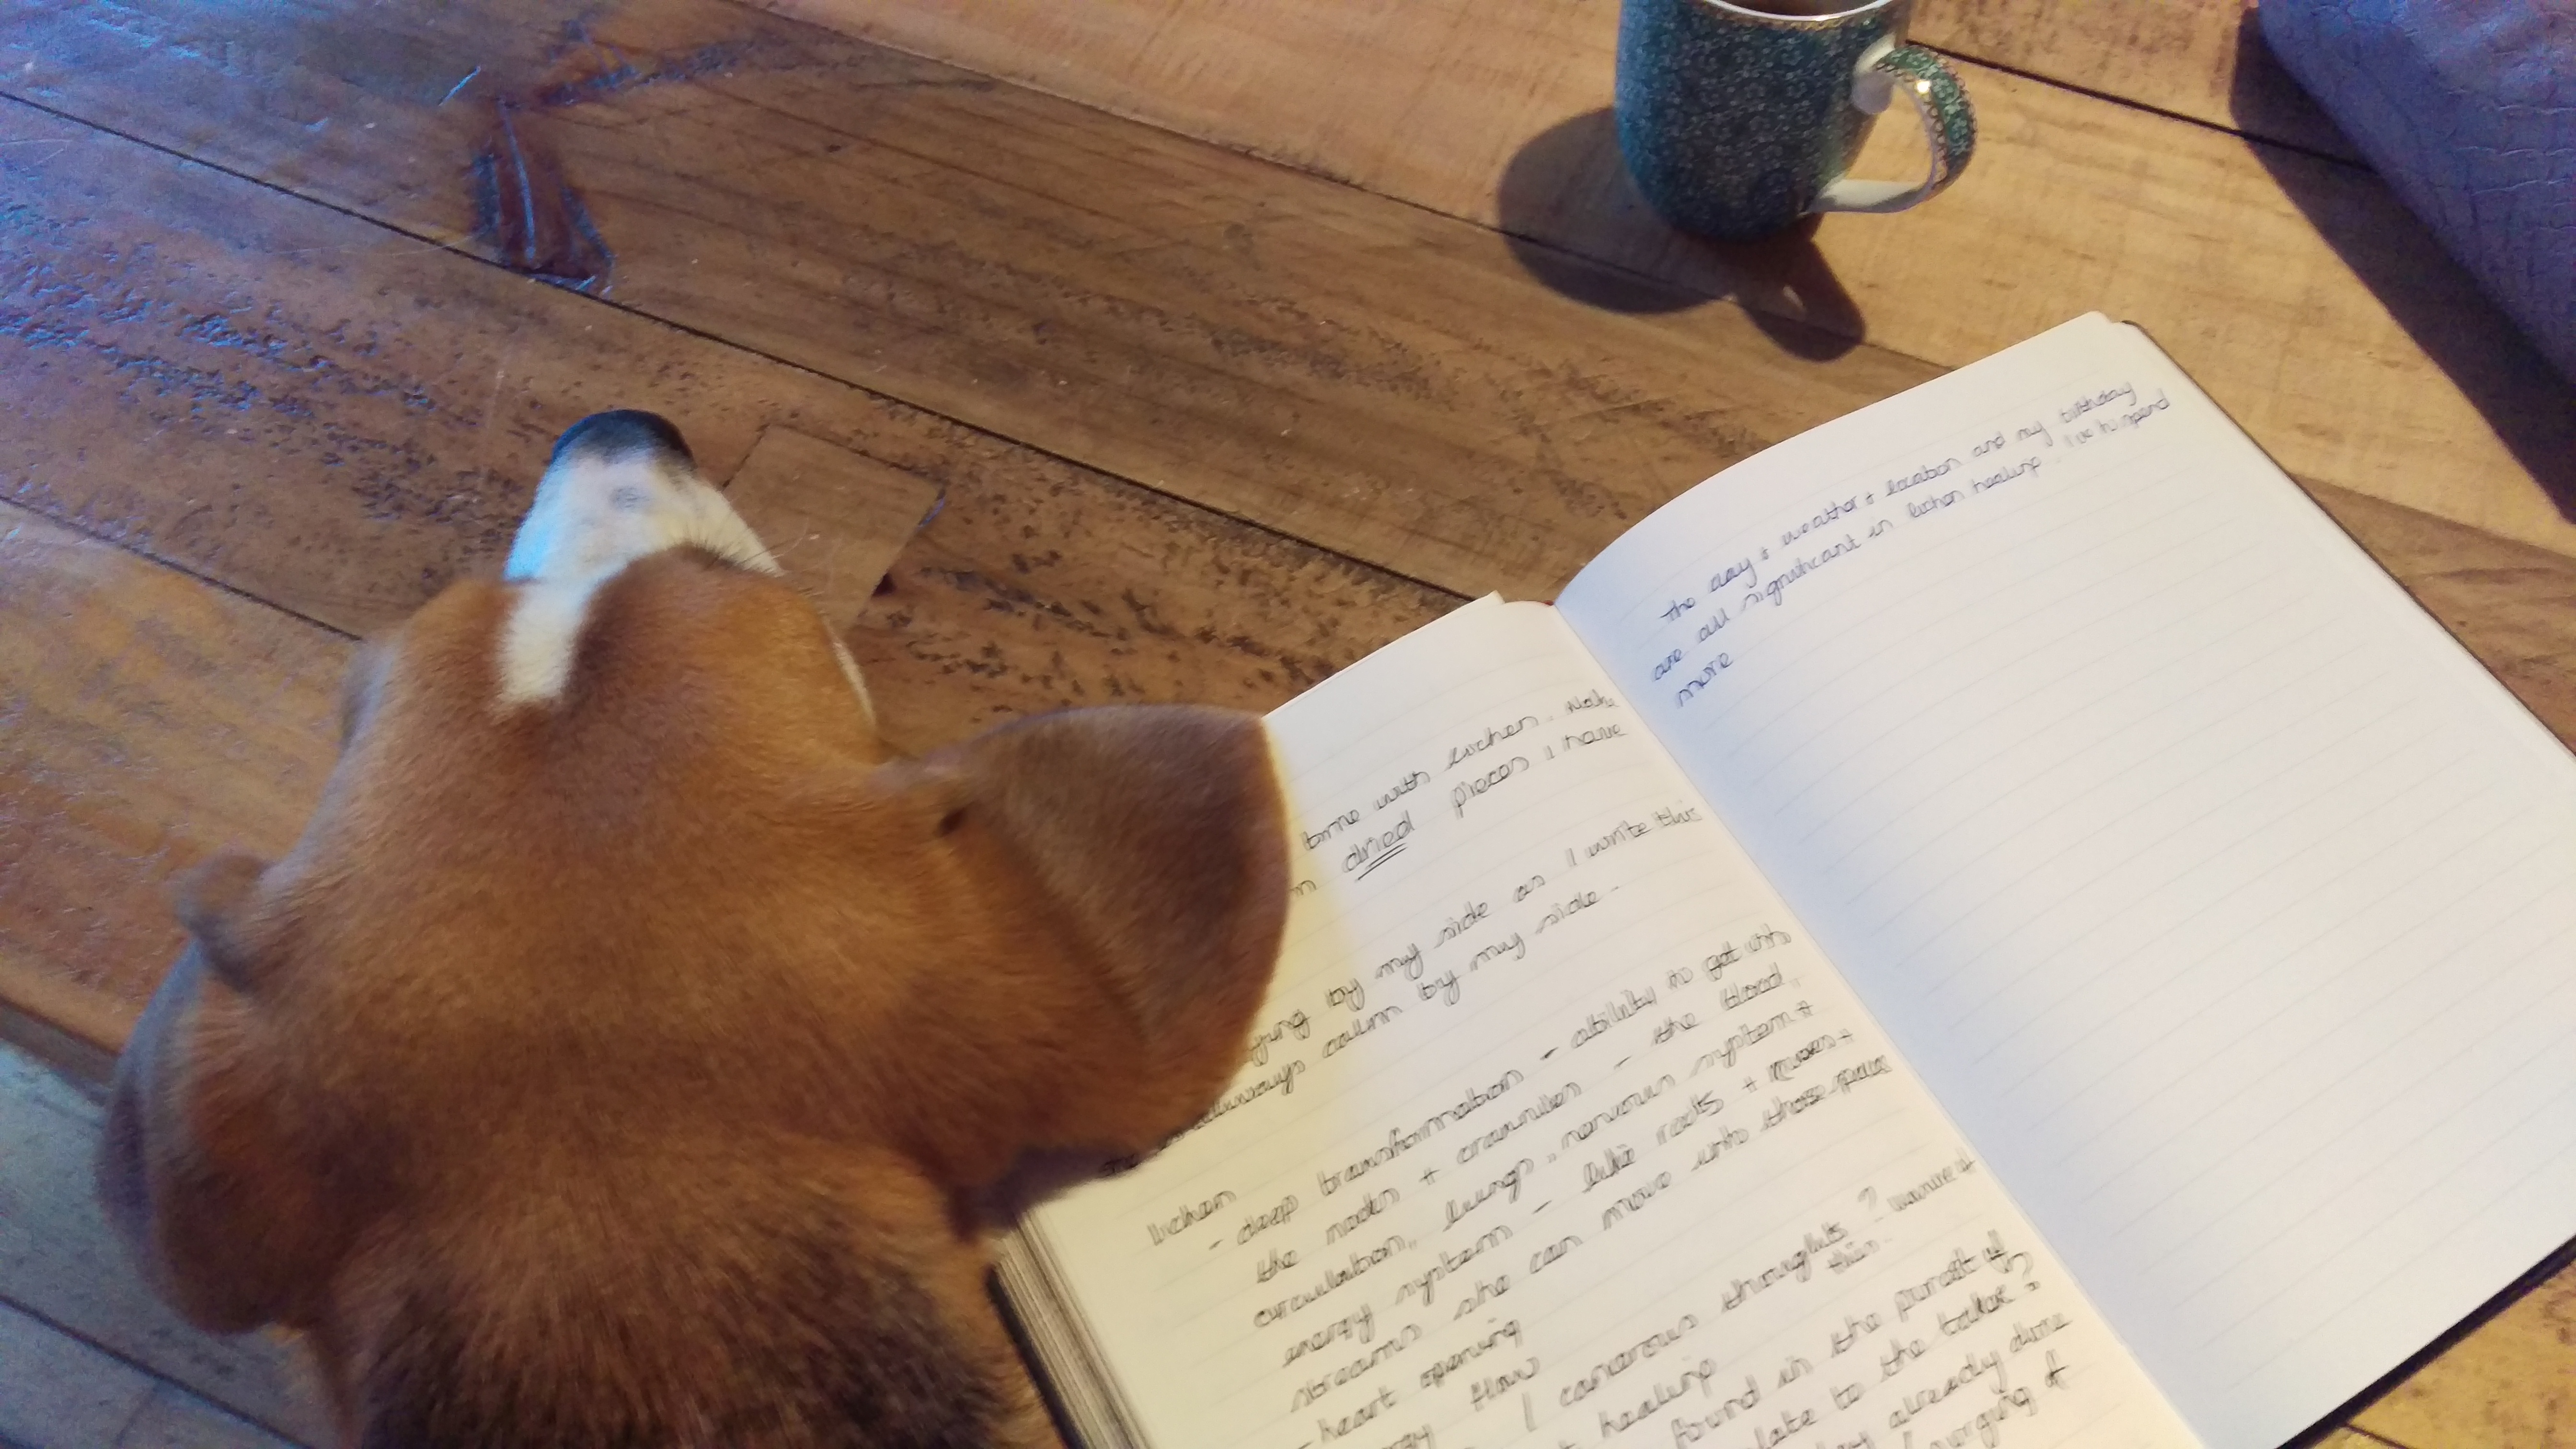 time with lichen. 
dried pieces I have
by my side as I write this
always calm by my side.
lichen
- deep transformation - ability to get into
the nooks + crannies - the blood,
circulation, lungs, nervous system +
energy system - like roots + rivers +
streams she can move into those
- heart opening
flow
I cancerous thoughts?
healing this.
found in the purest of
to the
already
of
The day + weather + location and my birthday
are all significant in lichen healing. to spend
more